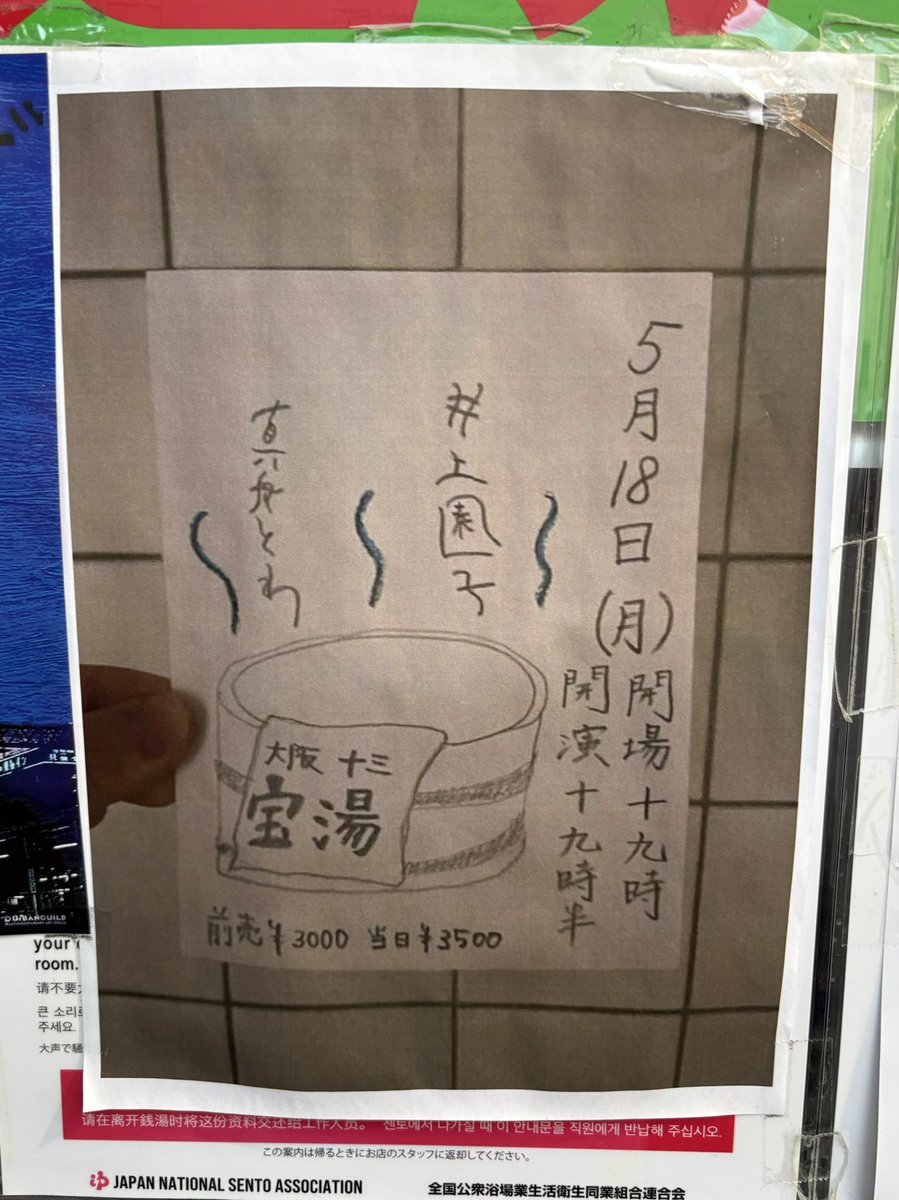 5月18日(月)開場十九時
開演十九時半
井上園子
真舟とわ
大阪 十三
宝湯
前売¥3000 当日¥3500
URBANGUILD
your
room.
请不要大
큰 소리로
주세요.
大声で騒
请在离开銭湯时将这份资料交还给工作人员。 센토에서 나가실 때 이 안내문을 직원에게 반납해 주십시오.
この案内は帰るときにお店のスタッフに返却してください。
JAPAN NATIONAL SENTO ASSOCIATION 全国公衆浴場業生活衛生同業組合連合会